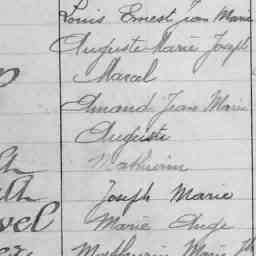 Louis Ernest Jean Marie
Auguste Marie Joseph
Marcel
Amand Jean Marie
Auguste
Mathurin
Joseph Marie
vel Marie Ange
Mathurin Marie